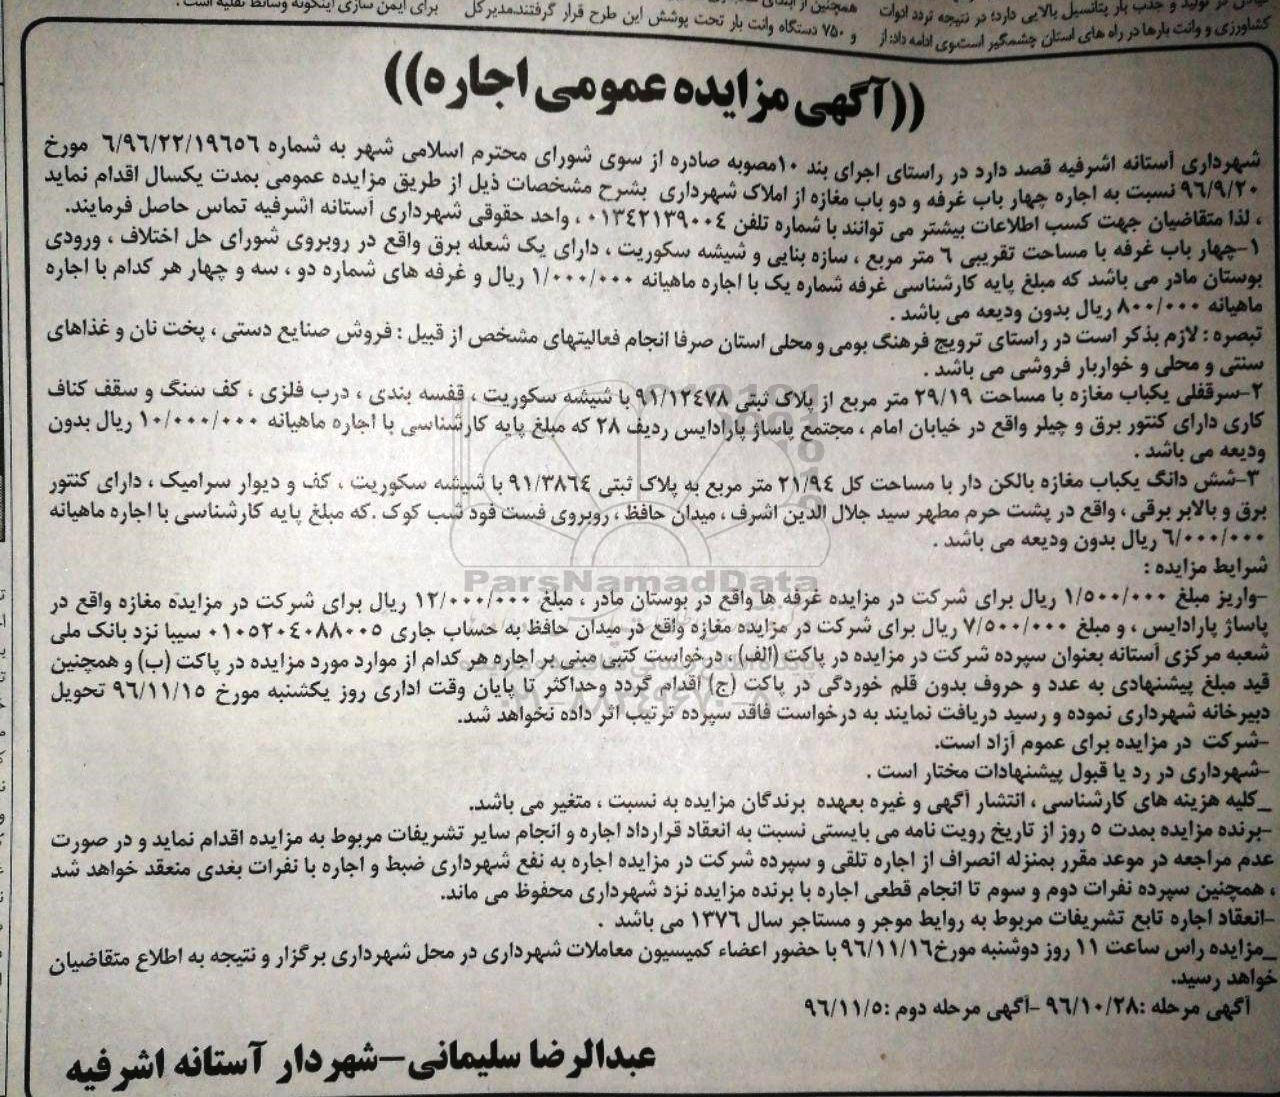 همچنین از ابتدای
و ۷۵۰ دستگاه وانت بار تحت پوشش این طرح قرار گرفتند.مدیرکل
برای ایمن سازی اینگونه وسائط نقلیه است .
تولید و جذب بار پتانسیل بالایی دارد؛ در نتیجه تردد ادوات
کشاورزی و وانت بارها در راه های استان چشمگیر است.وی ادامه داد: از
((آگهی مزایده عمومی اجاره))
شهرداری آستانه اشرفیه قصد دارد در راستای اجرای بند ۱۰مصوبه صادره از سوی شورای محترم اسلامی شهر به شماره ۶/۹۶/۲۲/۱۹۶۵۶ مورخ
۹۶/۹/۲۰ نسبت به اجاره چهار باب غرفه و دو باب مغازه از املاک شهرداری بشرح مشخصات ذیل از طریق مزایده عمومی بمدت یکسال اقدام نماید
، لذا متقاضیان جهت کسب اطلاعات بیشتر می توانند با شماره تلفن ۰۱۳۴۲۱۳۹۰۰۴ ، واحد حقوقی شهرداری آستانه اشرفیه تماس حاصل فرمایند.
۱-چهار باب غرفه با مساحت تقریبی ۶ متر مربع ، سازه بنایی و شیشه سکوریت ، دارای یک شعله برق واقع در روبروی شورای حل اختلاف ، ورودی
بوستان مادر می باشد که مبلغ پایه کارشناسی غرفه شماره یک با اجاره ماهیانه ۱/۰۰۰/۰۰۰ ریال و غرفه های شماره دو ، سه و چهار هر کدام با اجاره
ماهیانه ۸۰۰/۰۰۰ ریال بدون ودیعه می باشد .
تبصره : لازم بذکر است در راستای ترویج فرهنگ بومی و محلی استان صرفا انجام فعالیتهای مشخص از قبیل : فروش صنایع دستی ، پخت نان و غذاهای
سنتی و محلی و خواربار فروشی می باشد .
۲-سرقفلی یکباب مغازه با مساحت ۲۹/۱۹ متر مربع از پلاک ثبتی ۹۱/۱۲۴۷۸ با شیشه سکوریت ، قفسه بندی ، درب فلزی ، کف سنگ و سقف کناف
کاری دارای کنتور برق و چیلر واقع در خیابان امام ، مجتمع پاساژ پارادایس ردیف ۲۸ که مبلغ پایه کارشناسی با اجاره ماهیانه ۱۰/۰۰۰/۰۰۰ ریال بدون
ودیعه می باشد .
۳-شش دانگ یکباب مغازه بالکن دار با مساحت کل ۲۱/۹۴ متر مربع به پلاک ثبتی ۹۱/۳۸۶۴ با شیشه سکوریت ، کف و دیوار سرامیک ، دارای کنتور
برق و بالابر برقی ، واقع در پشت حرم مطهر سید جلال الدین اشرف ، میدان حافظ ، روبروی فست فود شب کوک .که مبلغ پایه کارشناسی با اجاره ماهیانه
۶/۰۰۰/۰۰۰ ریال بدون ودیعه می باشد .
ParsNamadData
شرایط مزایده :
-واریز مبلغ ۱/۵۰۰/۰۰۰ ریال برای شرکت در مزایده غرفه ها واقع در بوستان مادر ، مبلغ ۱۲/۰۰۰/۰۰۰ ریال برای شرکت در مزایده مغازه واقع در
پاساژ پارادایس ، و مبلغ ۷/۵۰۰/۰۰۰ ریال برای شرکت در مزایده مغازه واقع در میدان حافظ به حساب جاری ۰۱۰۵۲۰۴۰۸۸۰۰۵ سیبا نزد بانک ملی
شعبه مرکزی آستانه بعنوان سپرده شرکت در مزایده در پاکت (الف) ، درخواست کتبی مبنی بر اجاره هر کدام از موارد مورد مزایده در پاکت (ب) و همچنین
قید مبلغ پیشنهادی به عدد و حروف بدون قلم خوردگی در پاکت (ج) اقدام گردد وحداکثر تا پایان وقت اداری روز یکشنبه مورخ ۹۶/۱۱/۱۵ تحویل
دبیرخانه شهرداری نموده و رسید دریافت نمایند به درخواست فاقد سپرده ترتیب اثر داده نخواهد شد.
-شرکت در مزایده برای عموم آزاد است.
-شهرداری در رد یا قبول پیشنهادات مختار است .
_کلیه هزینه های کارشناسی ، انتشار آگهی و غیره بعهده برندگان مزایده به نسبت ، متغیر می باشد.
-برنده مزایده بمدت ۵ روز از تاریخ رویت نامه می بایستی نسبت به انعقاد قرارداد اجاره و انجام سایر تشریفات مربوط به مزایده اقدام نماید و در صورت
عدم مراجعه در موعد مقرر بمنزله انصراف از اجاره تلقی و سپرده شرکت در مزایده اجاره به نفع شهرداری ضبط و اجاره با نفرات بعدی منعقد خواهد شد
، همچنین سپرده نفرات دوم و سوم تا انجام قطعی اجاره با برنده مزایده نزد شهرداری محفوظ می ماند.
-انعقاد اجاره تابع تشریفات مربوط به روابط موجر و مستاجر سال ۱۳۷۶ می باشد .
_مزایده راس ساعت ۱۱ روز دوشنبه مورخ۹۶/۱۱/۱۶ با حضور اعضاء کمیسیون معاملات شهرداری در محل شهرداری برگزار و نتیجه به اطلاع متقاضیان
خواهد رسید.
آگهی مرحله :۹۶/۱۰/۲۸ -آگهی مرحله دوم :۹۶/۱۱/۵
عبدالرضا سلیمانی-شهردار آستانه اشرفیه